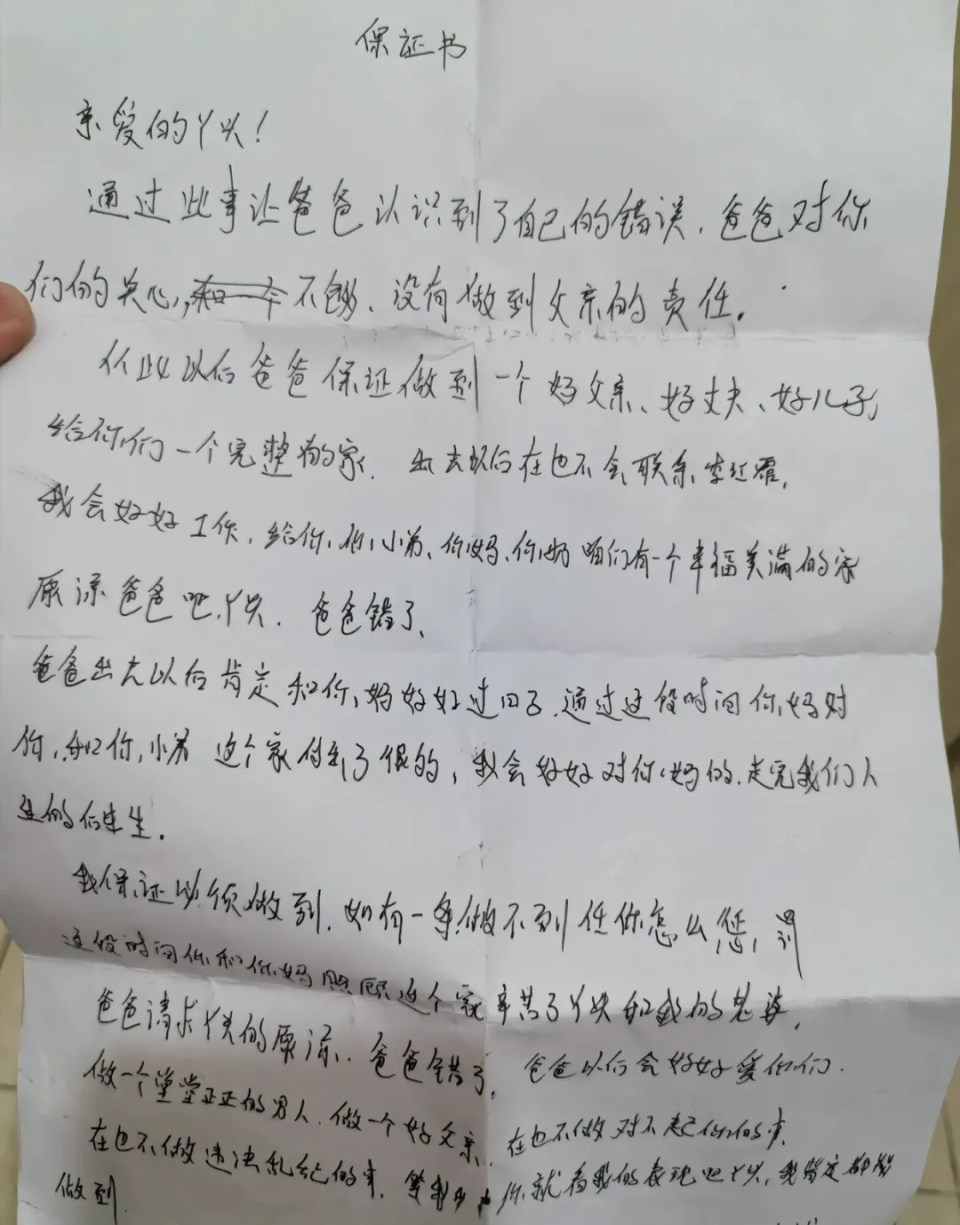 保证书
亲爱的丫头!
通过此事让爸爸认识到了自己的错误.爸爸对你
们的关心,不够.没有做到父亲的责任.
从此以后爸爸保证做到一个好父亲、好丈夫、好儿子,
给你们一个完整的家.出去以后在也不会联系李
我会好好工作.给你,你小弟、你妈、你奶咱们有一个幸福美满的家
原谅爸爸吧丫头.爸爸错了、
爸爸出去以后肯定和你妈好好过日子.通过这段时间你妈对
你,和你小弟这个家付出了很的,我会好好对你妈的.走完我们人
生.
我保证必须做到.如有一条做不到任你怎么惩罚
这段时间你和你妈照顾这个家辛苦了丫头和我的老婆,
爸爸请求丫头的原谅.爸爸错了,爸爸以后会好好爱你们.
做一个堂堂正正的男人.做一个好父亲.在也不做对不起你们的事.
在也不做违法乱纪的事.等我你就看我的表现吧丫头,我肯定都能
做到